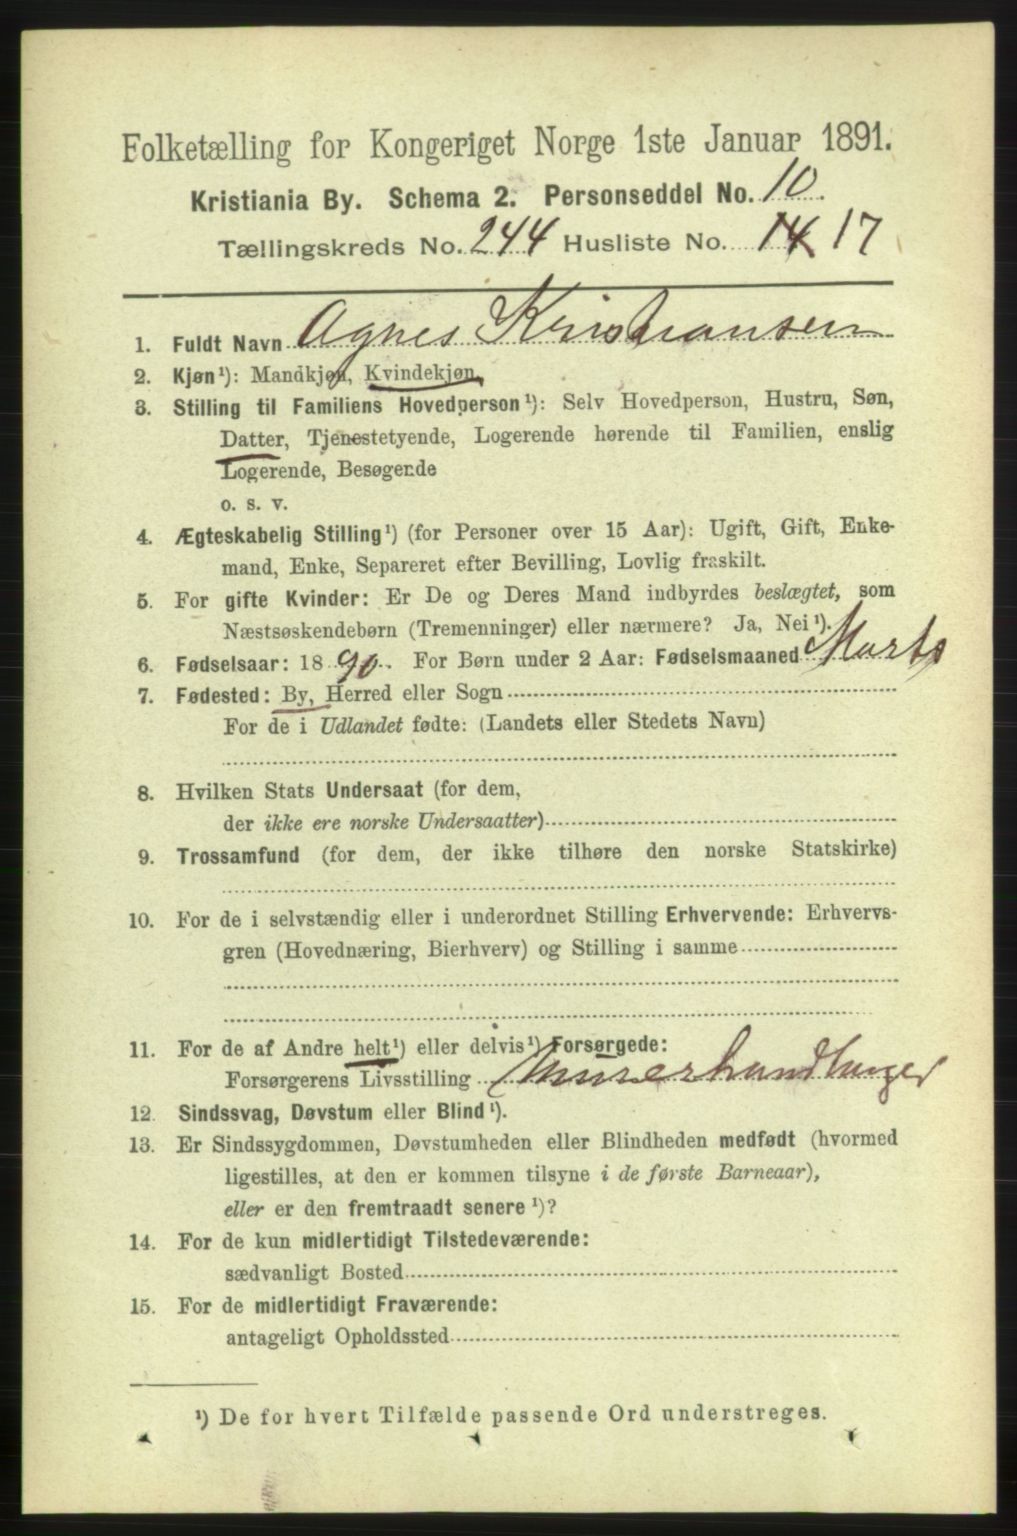 Folketælling for Kongeriget Norge 1ste Januar 1891.
Kristiania By. Schema 2. Personseddel No. 10.
Tællingskreds No. 244 Husliste No. 14 17
1. Fuldt Navn Agnes Kristiansen
2. Kjøn¹): Mandkjøn, Kvindekjøn.
3. Stilling til Familiens Hovedperson¹): Selv Hovedperson, Hustru, Søn,
Datter, Tjenestetyende, Logerende hørende til Familien, enslig
Logerende, Besøgende
o. s. v.
4. Ægteskabelig Stilling¹) (for Personer over 15 Aar): Ugift, Gift, Enke-
mand, Enke, Separeret efter Bevilling, Lovlig fraskilt.
5. For gifte Kvinder: Er De og Deres Mand indbyrdes beslægtet, som
Næstsøskendebørn (Tremenninger) eller nærmere? Ja, Nei¹).
6. Fødselsaar: 1890. For Børn under 2 Aar: Fødselsmaaned Marts
7. Fødested: By, Herred eller Sogn
For de i Udlandet fødte: (Landets eller Stedets Navn)
8. Hvilken Stats Undersaat (for dem,
der ikke ere norske Undersaatter)
9. Trossamfund (for dem, der ikke tilhøre den norske Statskirke)
10. For de i selvstændig eller i underordnet Stilling Erhvervende: Erhvervs-
gren (Hovednæring, Bierhverv) og Stilling i samme
11. For de af Andre helt¹) eller delvis¹) Forsørgede:
Forsørgerens Livsstilling Murerhandlanger
12. Sindssvag, Døvstum eller Blind¹).
13. Er Sindssygdommen, Døvstumheden eller Blindheden medfødt (hvormed
ligestilles, at den er kommen tilsyne i de første Barneaar),
eller er den fremtraadt senere¹)?
14. For de kun midlertidigt Tilstedeværende:
sædvanligt Bosted
15. For de midlertidigt Fraværende:
antageligt Opholdssted
¹) De for hvert Tilfælde passende Ord understreges.